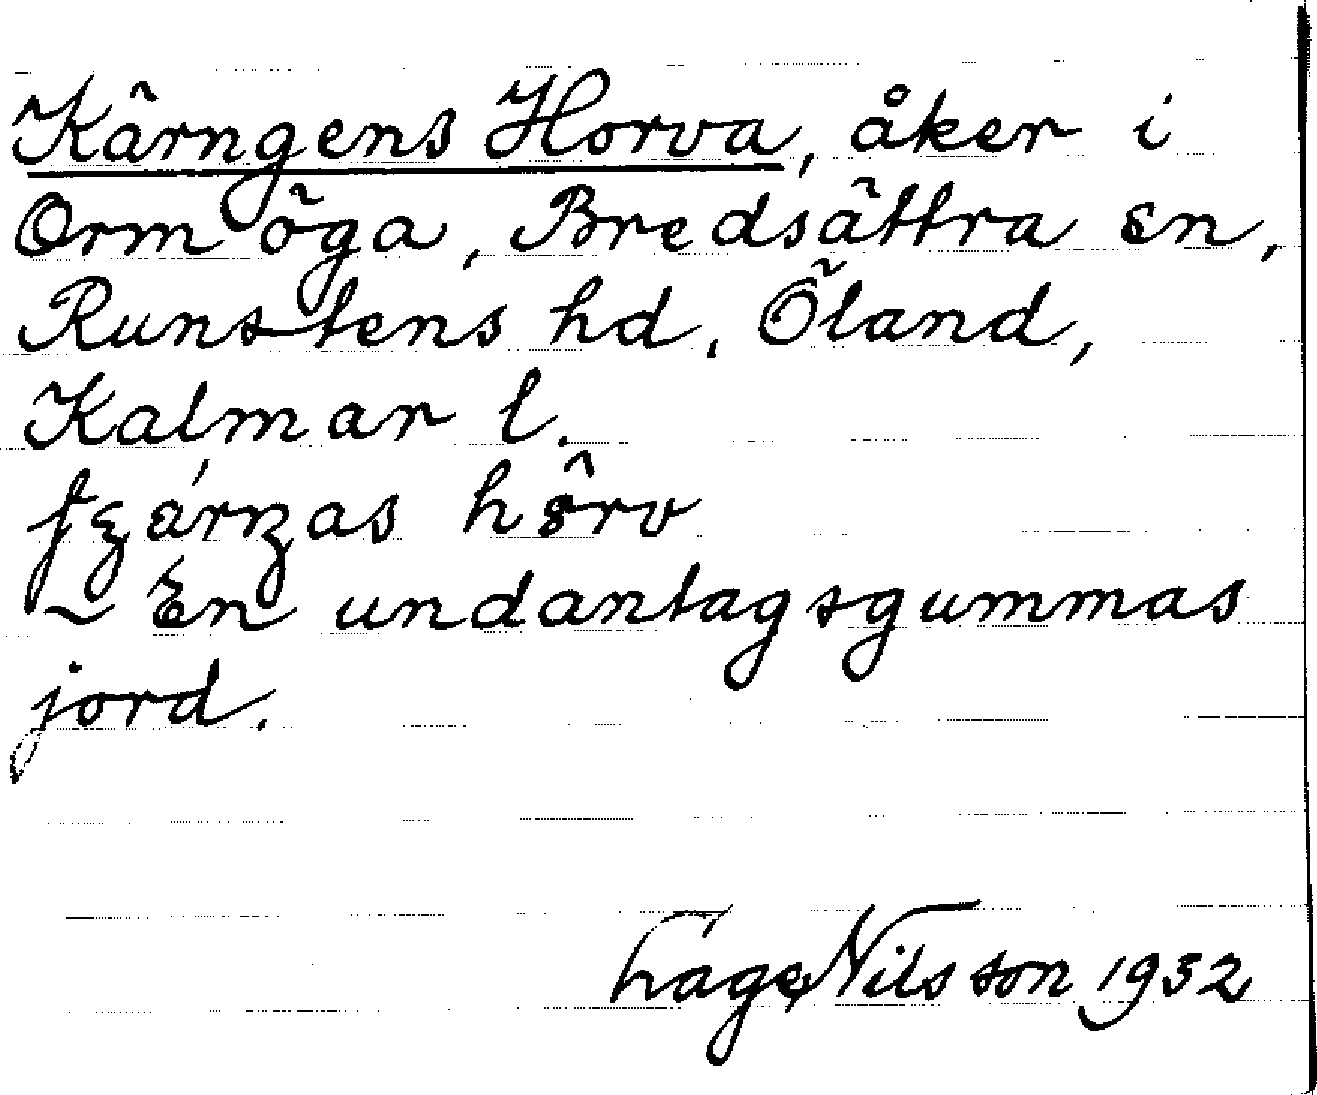 Kärngens Horva, åker i
Ormöga, Bredsättra sn,
Runstens hd, Öland,
Kalmar l.
hôrv
~ En undantagsgummas
jord.
Lage Nilsson 1932